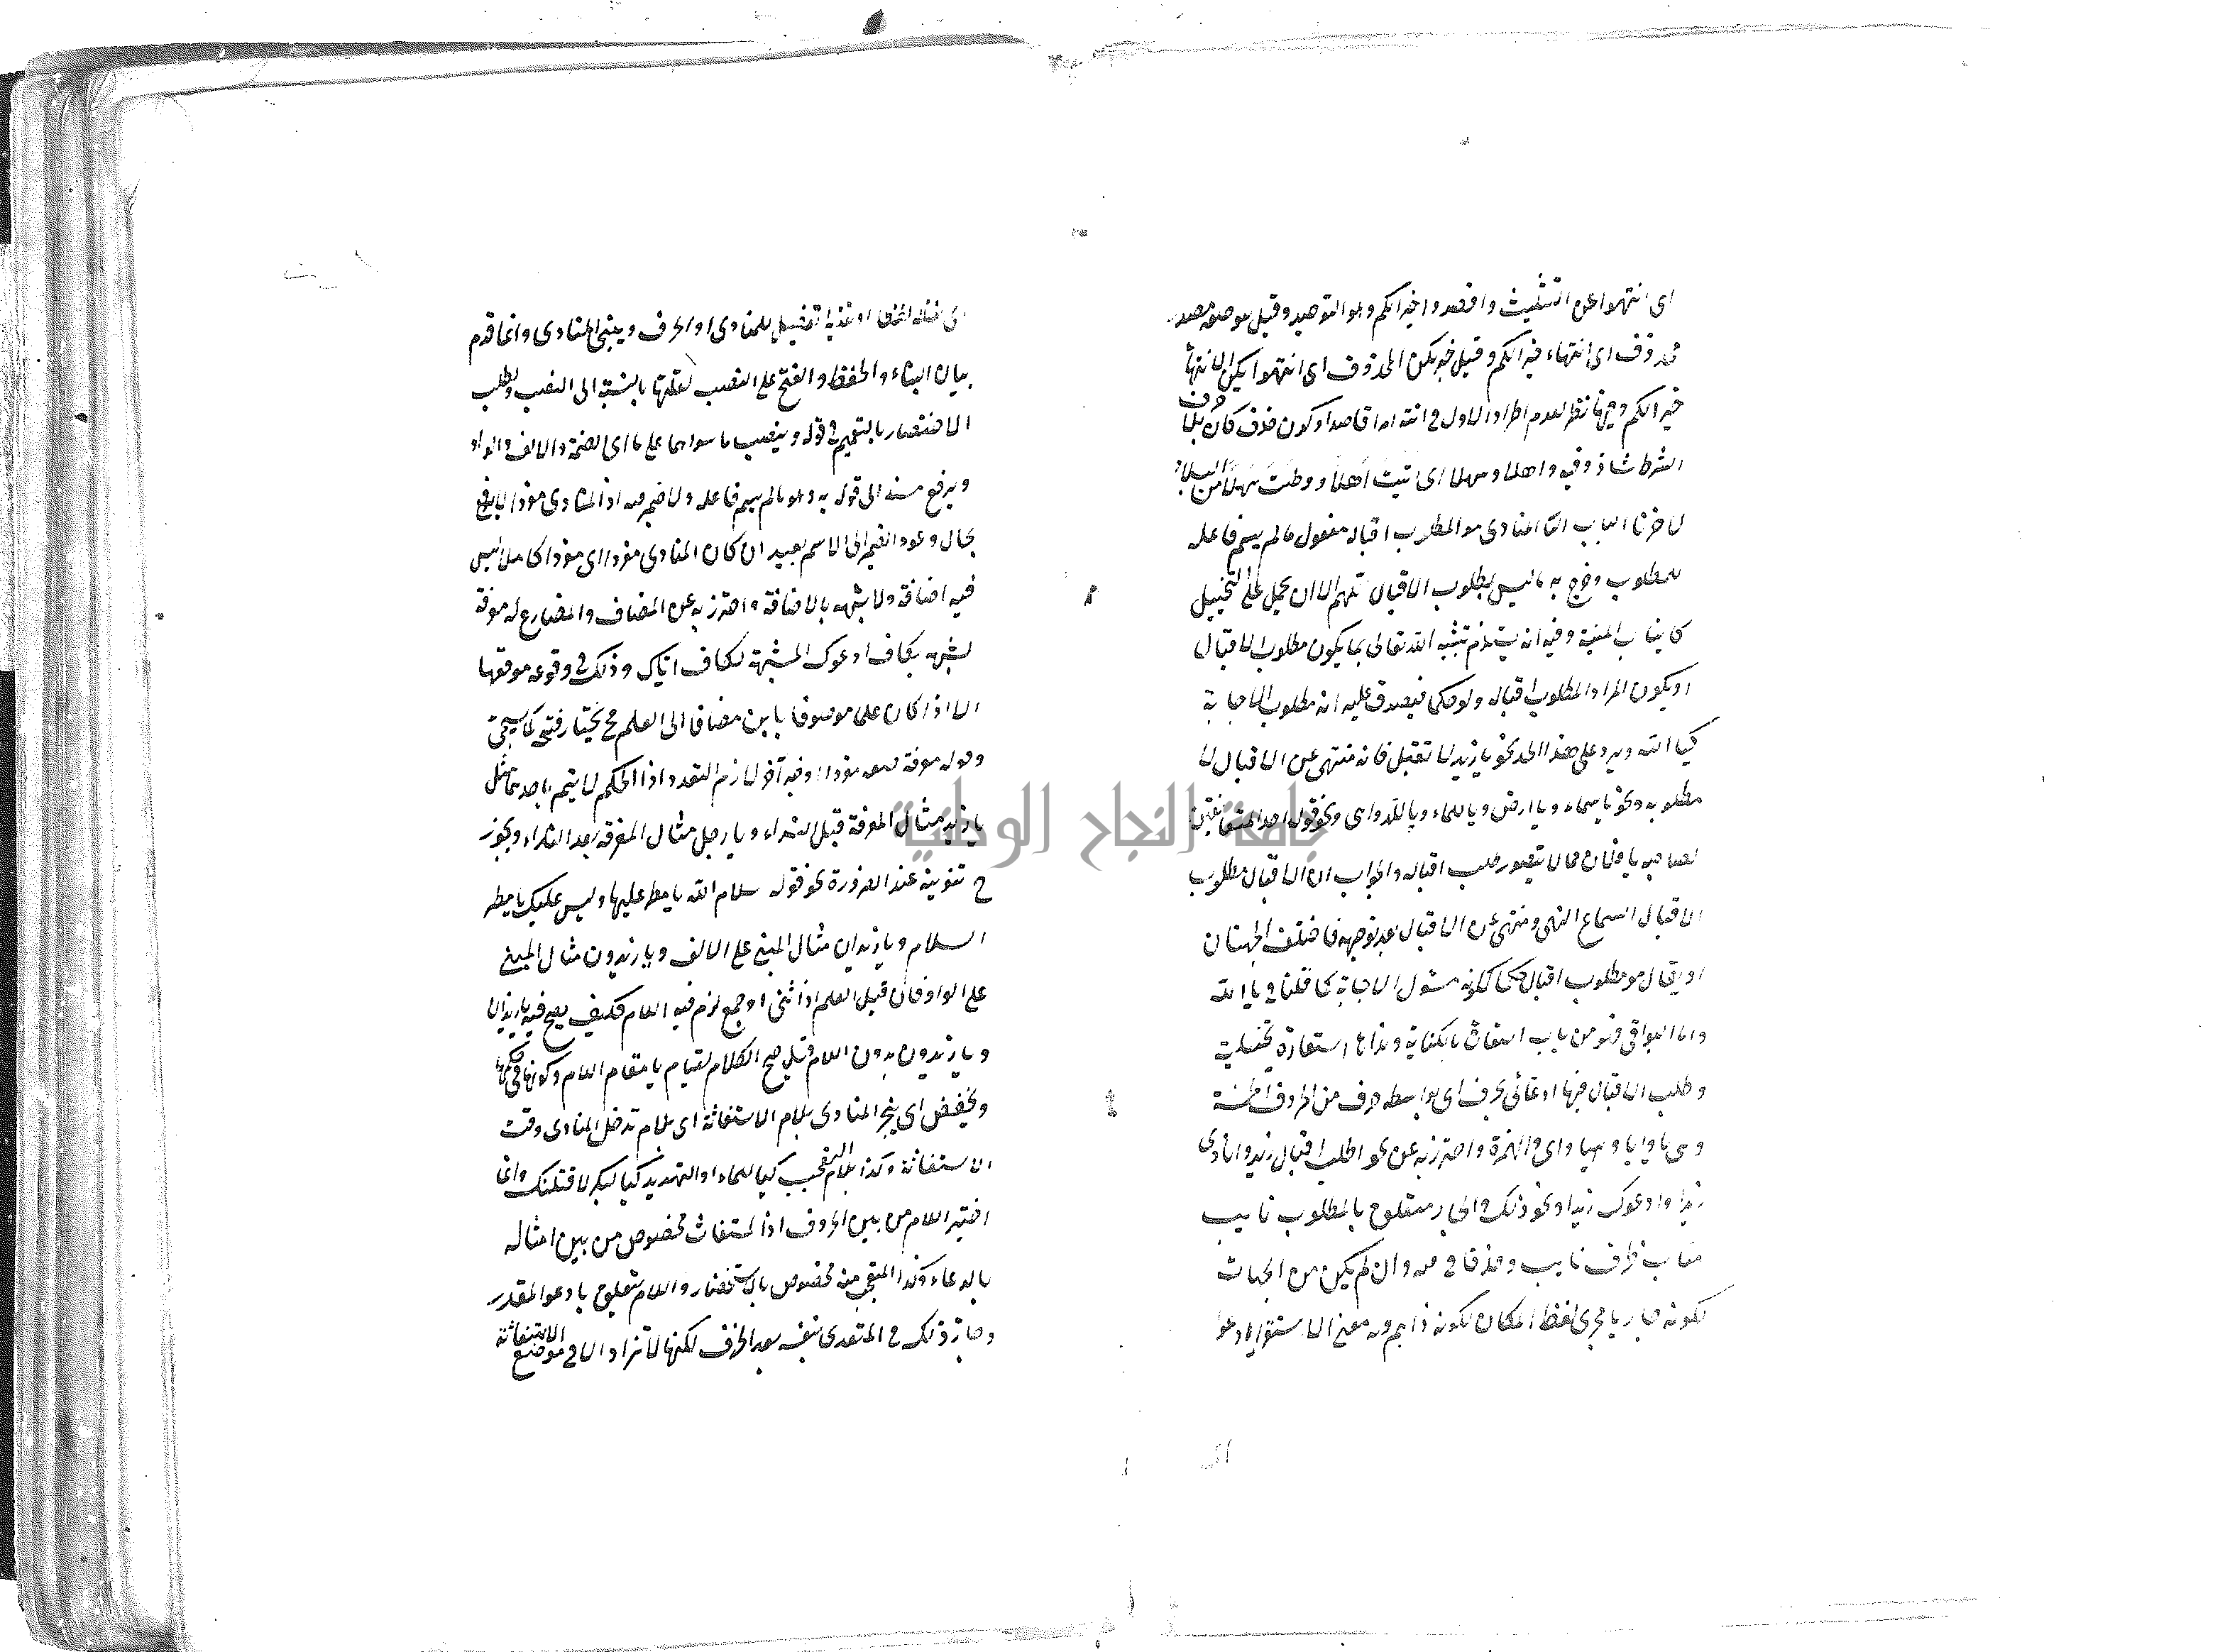 اى انتهوا عن التثليث واقصدوا خيرا لكم وهو التوحيد وقيل موصوفه مصدر
محذوف اى انتهاء خيرا لكم وقيل خبر يكن المحذوف اى انتهوا يكن الانتهاء
خيرا لكم وفيهما نظر لعدم اطراد الاول فى انته امرا قاصدا وكون حذف كان بلا حرف
الشرط شاذ وقيه واهلا وسهلا اى اتيت اهلا ووطئت سهلا من البلاد
لا حزنا الباب الثا المنادى هو المطلوب اقباله مفعول مالم يسم فاعله
للمطلوب وخرج به ما ليس بمطلوب الاقبال اللهم الا ان يحمل على التخييل
كانياب المنية وفيه انه يستلزم تشبيه الله تعالى بما يكون مطلوب الاقبال
او يكون المراد المطلوب اقباله ولو حكما فيصدق عليه انه مطلوب الاجابة
كيا الله ويرد على هذا الحد نحو يا زيد لا تقبل فانه منتهى عن الاقبال لا
مطلوبه ونحو يا سماء ويا ارض ويا للماء ويا للدواهى ونحو قول احد المتعانقين
لصاحبه يا فلان مما لا يتصور طلب اقباله والجواب ان الاقبال مطلوب
الاقبال لسماع النهى ومنتهى عن الاقبال بعد توجهه فاختلف الجهتان
او يقال هو مطلوب اقباله حكما لكونه مسئول الاجابة كما قلنا فى يا الله
واما البواقى فهو من باب استعارة بالكناية ونداءها استعارة تخييلية
وطلب الاقبال فيها ادعائى بحرف اى بواسطة حرف من الحروف الخمسة
وهى يا وايا وهيا واى والهمزة واحترز به عن نحو اطلب اقبال زيد وانادى
زيدا وادعوك زيدا ونحو ذلك والجار متعلق بالمطلوب نايب
مناب ظرف نايب وحذفا فى منه وان لم يكن من الجهات
لكونه جاريا مجرى لفظ المكان لكونه ذا ميم وله معنى الاستقرار ادعوا
لفظا او تقديرا تفصيل للمنادى او الحرف ويبنى المنادى وانما قدم
بيان البناء والخفض والفتح على النصب لقلتها بالنسبة الى النصب ولطلب
الاختصار بالتعميم فى قوله وينصب ما سواهما على ما اى الضمة والالف والواو
ويرفع مسند الى قوله به وهو مالم يسم فاعله ولا ضمير فيه اذ المنادى مفردا لا يرفع
بحال وعود الضمير الى الاسم بعيد ان كان المنادى مفردا اى مفردا كاملا ليس
فيه اضافة ولا شبهه بالاضافة واحترز به عن المضاف والمضارع له معرفة
لشبهه بكاف ادعوك المشبهة لكاف اياك وذلك فى وقوعه موقعها
الا اذا كان علما موصوفا بابن مضافا الى العلم فح يختار فتحه كما سيجئ
وقوله معرفة صفة مفردا وفيه آخر لازم التعدد اذ الحكم لا يتم باحدهما مثل
يا زيد مثال المعرفة قبل النداء ويا رجل مثال المعرفة بعد النداء ويجوز
ح تنوينه عند الضرورة نحو قوله سلام الله يا مطر عليها وليس عليك يا مطر
السلام ويا زيدان مثال المبنى على الالف ويا زيدون مثال المبنى
على الواو فان قيل العلم اذا ثنى او جمع لزم فيه اللام فكيف يصح فيه يا زيدان
ويا زيدون بدون اللام قيل صح الكلام لقيام يا مقام اللام وكونها فى حكمها
ويخفض اى ينجر المنادى بلام الاستغاثة اى بلام تدخل المنادى وقت
الاستغاثة وكذا بلام التعجب كيا للماء او التهديد كيا لبكر لاقتلنك وانما
اختير اللام من بين الحروف اذ المستغاث مخصوص من بين امثاله
بالدعاء وكذا المتعجب منه مخصوص بالاستحضار واللام متعلق بادعو المقدر
وجاز ذلك فى المتعدى بنفسه بعد الحذف لكنها لا تزاد الا فى موضع الاستغاثة
جامعة النجاح الوطنية